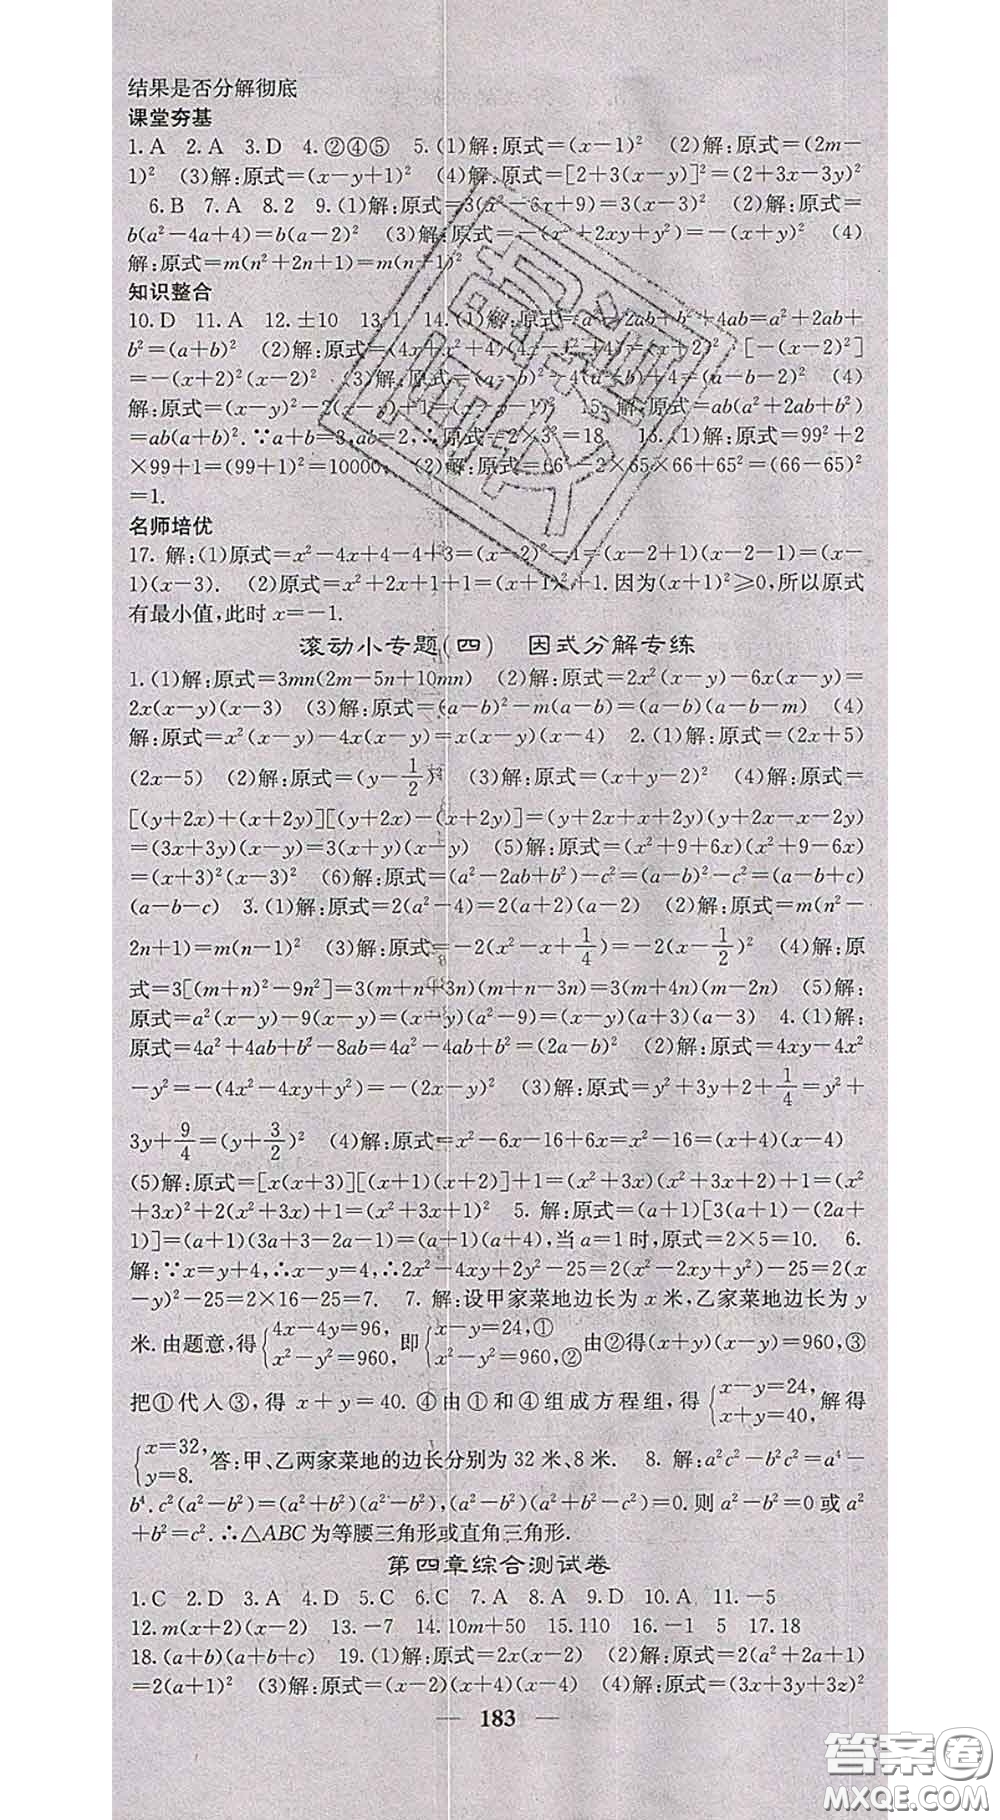 结果是否分解彻底
课堂夯基
1. A 2. A 3. D 4. ②④⑤ 5. (1)解:原式=(x-1)² (2)解:原式=(2m-
1)² (3)解:原式=(x-y+1)² (4)解:原式=[2+3(x-y)]²=(2+3x-3y)²
6. B 7. A 8. 2 9. (1)解:原式=3(x²-6x+9)=3(x-3)² (2)解:原式=
b(a²-4a+4)=b(a-2)² (3)解:原式=-(x²+2xy+y²)=-(x+y)² (4)
解:原式=m(n²+2n+1)=m(n+1)²
知识整合
10. D 11. A 12. ±10 13. 1 14. (1)解:原式=a²-2ab+b²+4ab=a²+2ab+
b²=(a+b)² (2)解:原式=(4x+x²+4)(4x-x²-4)=(x+2)²·[-(x-2)²]
=-(x+2)²(x-2)² (3)解:原式=(a-b)²-4(a-b)+4=(a-b-2)² (4)
解:原式=(x-y)²-2(x-y)+1=(x-y-1)² 15. 解:原式=ab(a²+2ab+b²)
=ab(a+b)².∵a+b=3,ab=2,∴原式=2×3²=18 16. (1)解:原式=99²+2
×99+1=(99+1)²=10000; (2)解:原式=66²-2×65×66+65²=(66-65)²
=1.
名师培优
17. 解:(1)原式=x²-4x+4-4+3=(x-2)²-1=(x-2+1)(x-2-1)=(x-
1)(x-3). (2)原式=x²+2x+1+1=(x+1)²+1.因为(x+1)²≥0,所以原式
有最小值,此时x=-1.
滚动小专题(四) 因式分解专练
1. (1)解:原式=3mn(2m-5n+10mn) (2)解:原式=2x²(x-y)-6x(x-y)=
2x(x-y)(x-3) (3)解:原式=(a-b)²-m(a-b)=(a-b)(a-b-m) (4)
解:原式=x²(x-y)-4x(x-y)=x(x-y)(x-4) 2. (1)解:原式=(2x+5)
(2x-5) (2)解:原式=(y-1/2)² (3)解:原式=(x+y-2)² (4)解:原式=
[(y+2x)+(x+2y)][(y+2x)-(x+2y)]=(y+2x+x+2y)(y+2x-x-2y)
=(3x+3y)(x-y)=3(x+y)(x-y) (5)解:原式=(x²+9+6x)(x²+9-6x)
=(x+3)²(x-3)² (6)解:原式=(a²-2ab+b²)-c²=(a-b)²-c²=(a-b+c)
(a-b-c) 3. (1)解:原式=2(a²-4)=2(a+2)(a-2) (2)解:原式=m(n²-
2n+1)=m(n-1)² (3)解:原式=-2(x²-x+1/4)=-2(x-1/2)² (4)解:原
式=3[(m+n)²-9n²]=3(m+n+3n)(m+n-3n)=3(m+4n)(m-2n) (5)解:
原式=a²(x-y)-9(x-y)=(x-y)(a²-9)=(x-y)(a+3)(a-3) 4. (1)解:
原式=4a²+4ab+b²-8ab=4a²-4ab+b²=(2a-b)² (2)解:原式=4xy-4x²
-y²=-(4x²-4xy+y²)=-(2x-y)² (3)解:原式=y²+3y+2+1/4=y²+
3y+9/4=(y+3/2)² (4)解:原式=x²-6x-16+6x=x²-16=(x+4)(x-4)
(5)解:原式=[x(x+3)][(x+1)(x+2)]+1=(x²+3x)(x²+3x+2)+1=(x²
+3x)²+2(x²+3x)+1=(x²+3x+1)² 5. 解:原式=(a+1)[3(a+1)-(2a+
1)]=(a+1)(3a+3-2a-1)=(a+1)(a+4),当a=1时,原式=2×5=10. 6.
解:∵x=y+4,∴x-y=4,∴2x²-4xy+2y²-25=2(x²-2xy+y²)-25=2(x
-y)²-25=2×16-25=7. 7. 解:设甲家菜地边长为x米,乙家菜地边长为y
米.由题意,得{4x-4y=96, x²-y²=960, 即{x-y=24,① x²-y²=960,② 由②得(x+y)(x-y)=960,③
把①代入③,得 x+y=40.④由①和④组成方程组,得{x-y=24, x+y=40, 解得
{x=32, y=8. 答:甲、乙两家菜地的边长分别为32米、8米. 8. 解:a²c²-b²c²=a⁴-
b⁴.c²(a²-b²)=(a²+b²)(a²-b²),(a²-b²)(a²+b²-c²)=0.则a²-b²=0或a²
+b²=c².∴△ABC为等腰三角形或直角三角形.
第四章综合测试卷
1. C 2. D 3. A 4. D 5. C 6. C 7. A 8. A 9. D 10. A 11. -5
12. m(x+2)(x-2) 13. -7 14. 10m+50 15. 110 16. -1 5 17. 18
18. (a+b)(a+b+c) 19. (1)解:原式=2x(x-2) (2)解:原式=2(a²+2a+1)
=2(a+1)² (3)解:原式=(x-2)(x+4)(x-4) (4)解:原式=(3x+3y+3z)²
— 183 —
答案圈
MXQE.COM